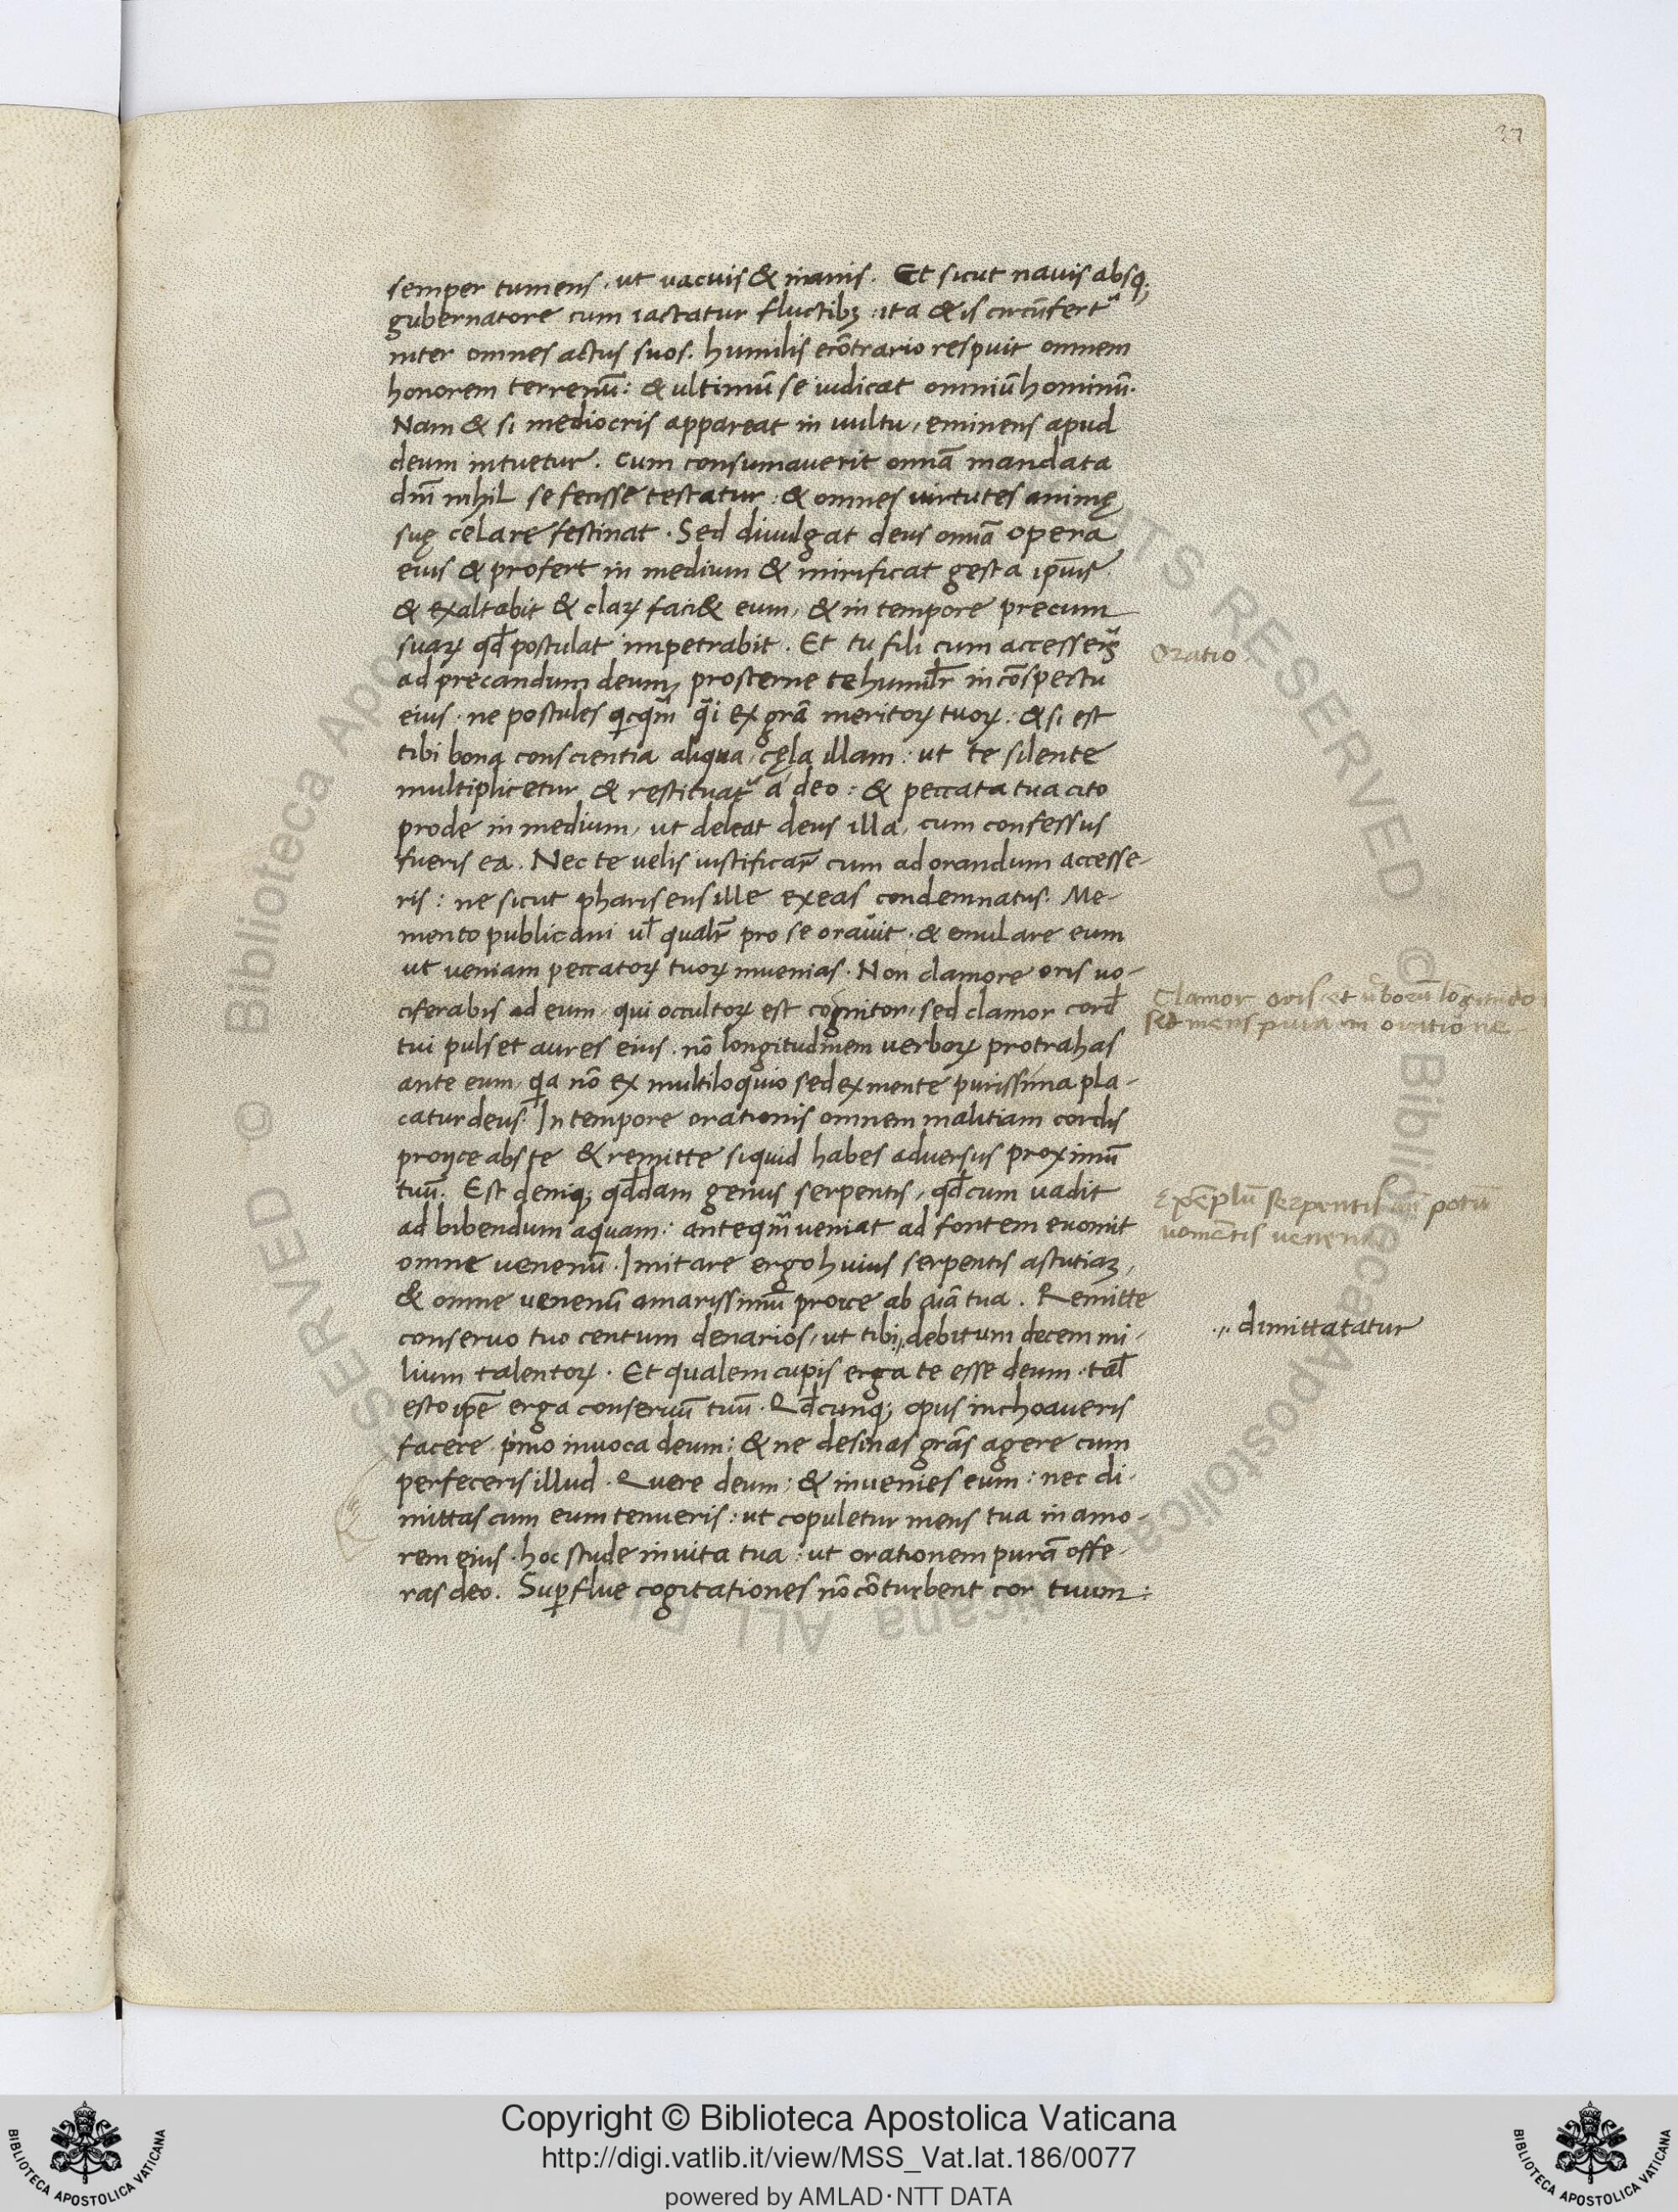 37
semper tumens, ut uacuis & inanis. Et sicut nauis absq;
gubernatore cum iactatur fluctibꝫ : ita & is circūfertᷣ
inter omnes actus suos. humilis ecōtrario respuit omnem
honorem terrenū : & ultimū se iudicat omniū hominū.
Nam & si mediocris appareat in uultu, eminens apud
deum intuetur. cum consumauerit omīa mandata
dnī nihil se fecisse testatur : & omnes uirtutes animę
suę celare festinat. Sed diuulgat deus omīa opera
eius & profert in medium & mirificat gesta ipīus.
& exaltabit & claꝝ faci& eum, & in tempore precum
suaꝝ qđ postulat impetrabit. Et tu fili cum accesseris
ad precandum deum, prosterne te humilr̄ in cōspectu
eius. ne postules qcq̄m q̄i ex grā meritoꝝ tuoꝝ. & si est
tibi bona conscientia aliqua, cęla illam : ut te silente
multiplicetur & restituatᷣ a deo : & peccata tua cito
prode in medium, ut deleat deus illa, cum confessus
fueris ea. Nec te uelis iustificar̄ cum ad orandum accesse-
ris : ne sicut phariseus ille exeas condemnatus. Me-
mento publicani ul̄ qualr̄ pro se orauit. & emulare eum
ut ueniam peccatoꝝ tuoꝝ inuenias. Non clamore oris uo-
ciferabis ad eum, qui occultoꝝ est cognitor, sed clamor cord̄
tui pulset aures eius. nō longitudinem uerboꝝ protrahas
ante eum, qa nō ex multiloquio sed ex mente purissima pla-
catur deus. In tempore orationis omnem malitiam cordis
proijce abs te & remitte siquid habes aduersus proximū
tuū. Est deniq; qđdam genus serpentis, qđ cum uadit
ad bibendum aquam : anteq̄m ueniat ad fontem euomit
omne uenenū. Imitare ergo huius serpentis astutiaꝫ,
& omne uenenū amarissimū proice ab aīa tua. Remitte
conseruo tuo centum denarios, ut tibi,,. debitum decem mi-
lium talentoꝝ. Et qualem cupis erga te esse deum. tal̄
esto ipē erga conseruū tuū. Qđcunq; opus inchoaueris
facere primo inuoca deum : & ne desinas grās agere cum
perfeceris illud. Quere deum : & inuenies eum : nec di-
mittas cum eum tenueris : ut copuletur mens tua in amo-
rem eius. hoc stude in uita tua : ut orationem purā offe-
ras deo. Suꝑflue cogitationes nō cōturbent cor tuum :
Oratio
Clamor oris et ūborū lōgitudo
sed mens pura in oratione
Exēplū serpentis potū
uomētis uenenū
.,, dimittatatur
Copyright © Biblioteca Apostolica Vaticana
http://digi.vatlib.it/view/MSS_Vat.lat.186/0077
powered by AMLAD · NTT DATA
BIBLIOTECA APOSTOLICA VATICANA
BIBLIOTECA APOSTOLICA VATICANA